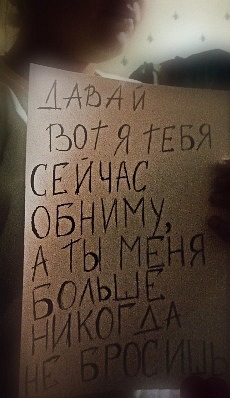 ДАВАЙ
ВОТ Я ТЕБЯ
СЕЙЧАС
ОБНИМУ,
А ТЫ МЕНЯ
БОЛЬШЕ
НИКОГДА
НЕ БРОСИШЬ